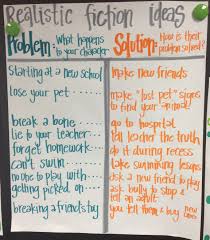 Realistic fiction ideas
Problem: What happens
to your character
Starting at a new school
lose your pet....
break a bone....
lie to your teacher....
forget homework....
can't swim....
no one to play with....
getting picked on....
breaking a friend's toy
Solution: How is their
problem solved?
make new friends
make "lost pet" signs
to find your animal
go to hospital
tell teacher the truth
do it during recess
take swimming lessons
ask a new friend to play
ask bully to stop &
tell an adult
you tell them & buy new